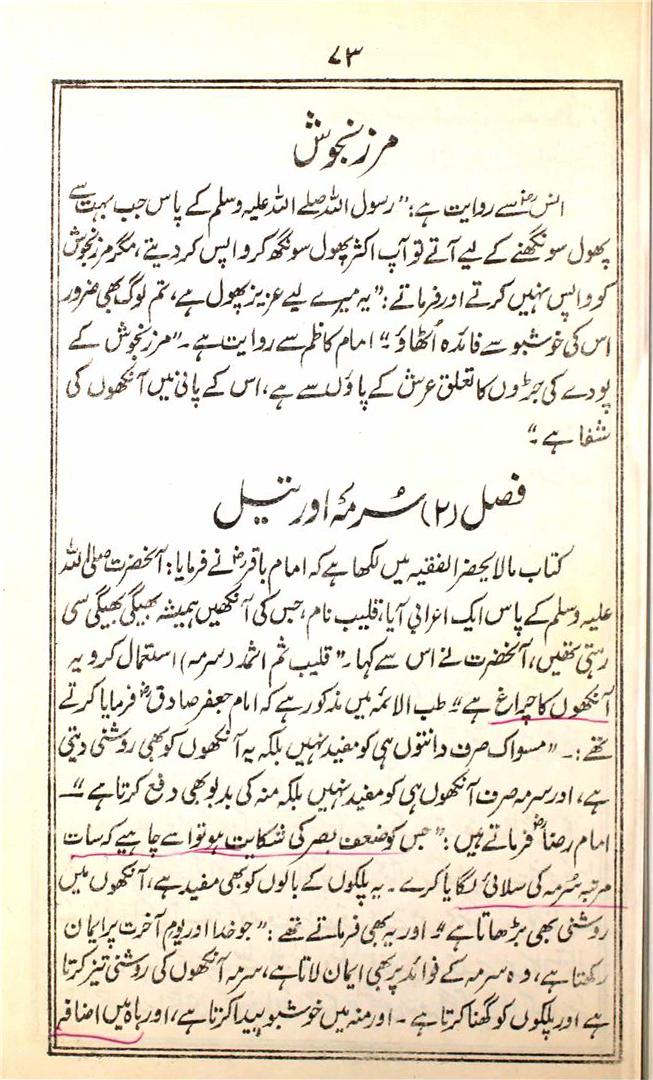 ۷۳
مرزنجوش
انسؓ سے روایت ہے: ”رسول اللہ صلے اللہ علیہ وسلم کے پاس جب بہت سے
پھول سونگھنے کے لیے آتے تو آپ اکثر پھول سونگھ کر واپس کر دیتے، مگر مرزنجوش
کو واپس نہیں کرتے اور فرماتے: ”یہ میرے لیے عزیز پھول ہے، تم لوگ بھی ضرور
اس کی خوشبو سے فائدہ اُٹھاؤ۔“ امام کاظم سے روایت ہے۔ ”مرزنجوش کے
پودے کی جڑوں کا تعلق عرش کے پاؤں سے ہے، اس کے پانی میں آنکھوں کی
شفا ہے۔“
فصل (۲) سُرمہ اور تیل
کتاب مالا یحضر الفقیہ میں لکھا ہے کہ امام باقرؓ نے فرمایا: آنحضرت صلی اللہ
علیہ وسلم کے پاس ایک اعرابی آیا، قلیب نام، جس کی آنکھیں ہمیشہ بھیگی بھیگی سی
رہتی تھیں، آنحضرت نے اس سے کہا۔ ”قلیب تم اثمد (سرمہ) استعمال کرو یہ
آنکھوں کا چراغ ہے۔“ طب الائمہ میں مذکور ہے کہ امام جعفر صادقؓ فرمایا کرتے
تھے:۔ ”مسواک صرف دانتوں ہی کو مفید نہیں بلکہ یہ آنکھوں کو بھی روشنی دیتی
ہے، اور سرمہ صرف آنکھوں ہی کو مفید نہیں بلکہ منہ کی بدبو بھی دفع کرتا ہے۔“
امام رضاؓ فرماتے ہیں: ”جس کو ضعف بصر کی شکایت ہو تو اسے چاہیے کہ سات
مرتبہ سُرمہ کی سلائی لگایا کرے۔ یہ پلکوں کے بالوں کو بھی مفید ہے، آنکھوں میں
روشنی بھی بڑھاتا ہے۔“ اور یہ بھی فرماتے تھے: ”جو خدا اور یوم آخرت پر ایمان
رکھتا ہے، وہ سرمہ کے فوائد پر بھی ایمان لاتا ہے، سرمہ آنکھوں کی روشنی تیز کرتا
ہے اور پلکوں کو گھنا کرتا ہے۔ اور منہ میں خوشبو پیدا کرتا ہے، اور باہ میں اضافہ